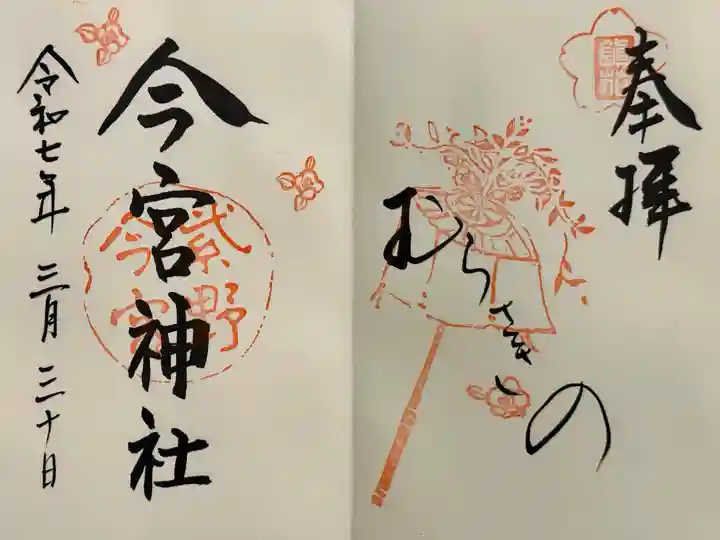 奉拝
むらさきの
今宮神社
紫野
今宮
令和七年 三月 三十日